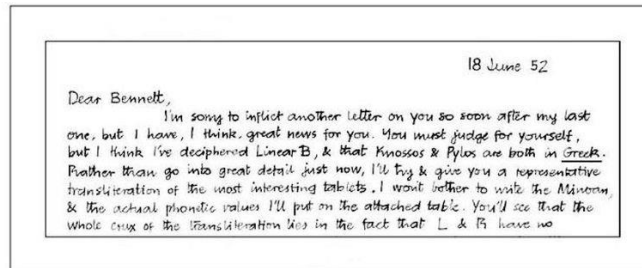 18 June 52
Dear Bennett,
I'm sorry to inflict another letter on you so soon after my last
one, but I have, I think, great news for you. You must judge for yourself,
but I think I've deciphered Linear B, & that Knossos & Pylos are both in Greek.
Rather than go into great detail just now, I'll try & give you a representative
transliteration of the most interesting tablets. I won't bother to write the Minoan,
& the actual phonetic values I'll put on the attached table. You'll see that the
whole crux of the transliteration lies in the fact that L & R have no